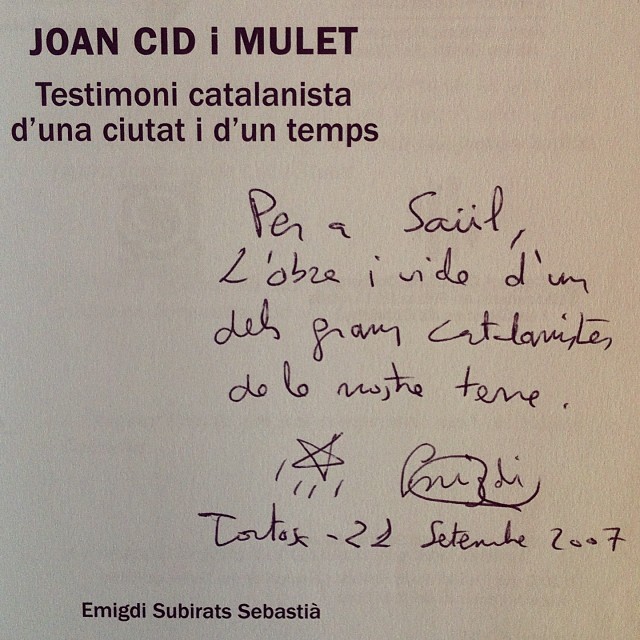 JOAN CID i MULET
Testimoni catalanista
d'una ciutat i d'un temps
Per a Saül,
L'obra i vida d'un
dels grans catalanistes
de la nostra terra.
Emigdi
Tortosa - 22 Setembre 2007
Emigdi Subirats Sebastià